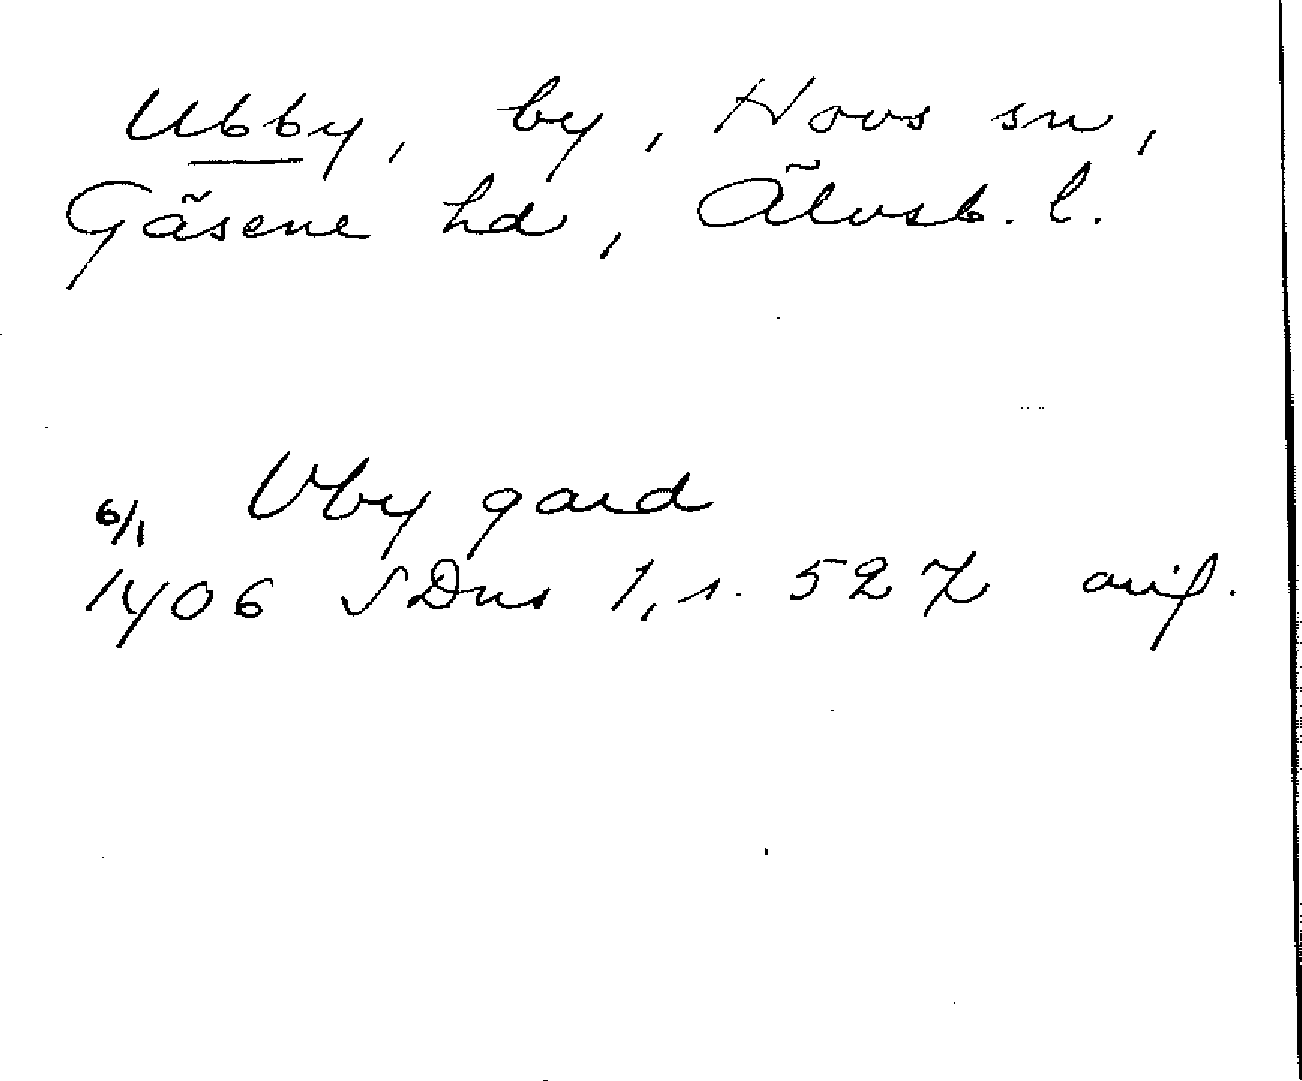 Ubby, by, Hovs sn,
Gäsene hd, Älvsb. l.
Vby gard
6/1
1406 SDns 1, s. 527 avs.